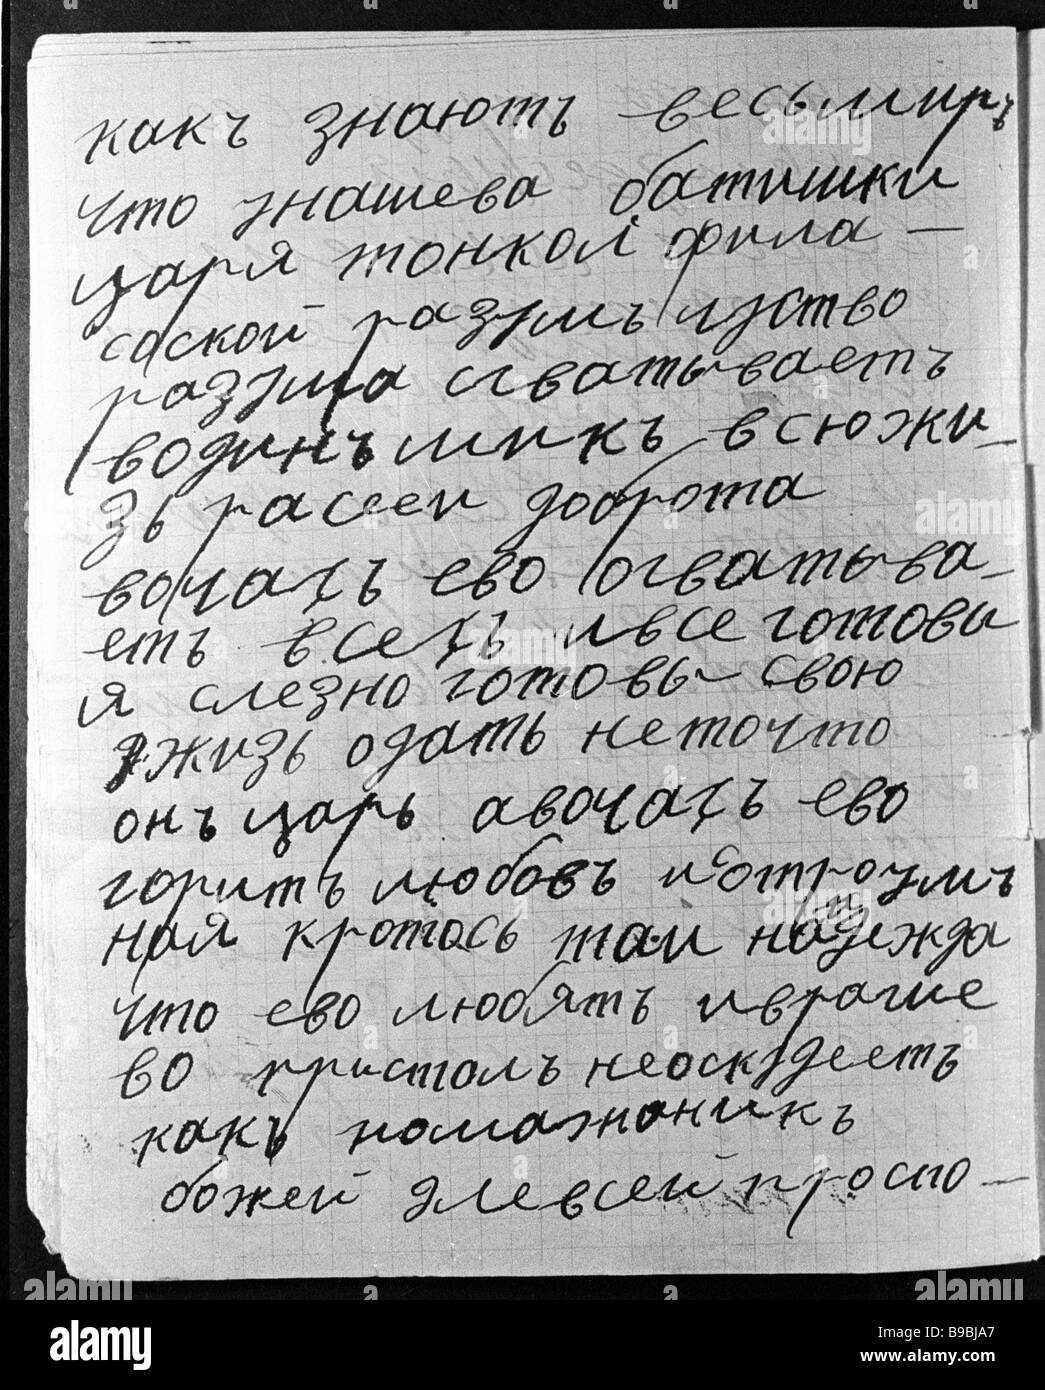 какъ знаютъ весьмиръ
что унашева батишки
царя тонкой фила—
соской разумъ ичуство
разума огватываетъ
водинъ микъ всюжи-
зь расееи доброта
вочахъ ево огватыва-
еть всехъ ивсе готовы
я слезно готовы свою
жизь одать неточто
онъ царь авочахъ ево
горитъ любовъ иотроумъ
ная кротось таи надежда
что ево любятъ иврагие
во пристолъ неоскудеетъ
какъ помажаникъ
божей длевсей просто—
alamy
B9BJA7
www.alamy.com